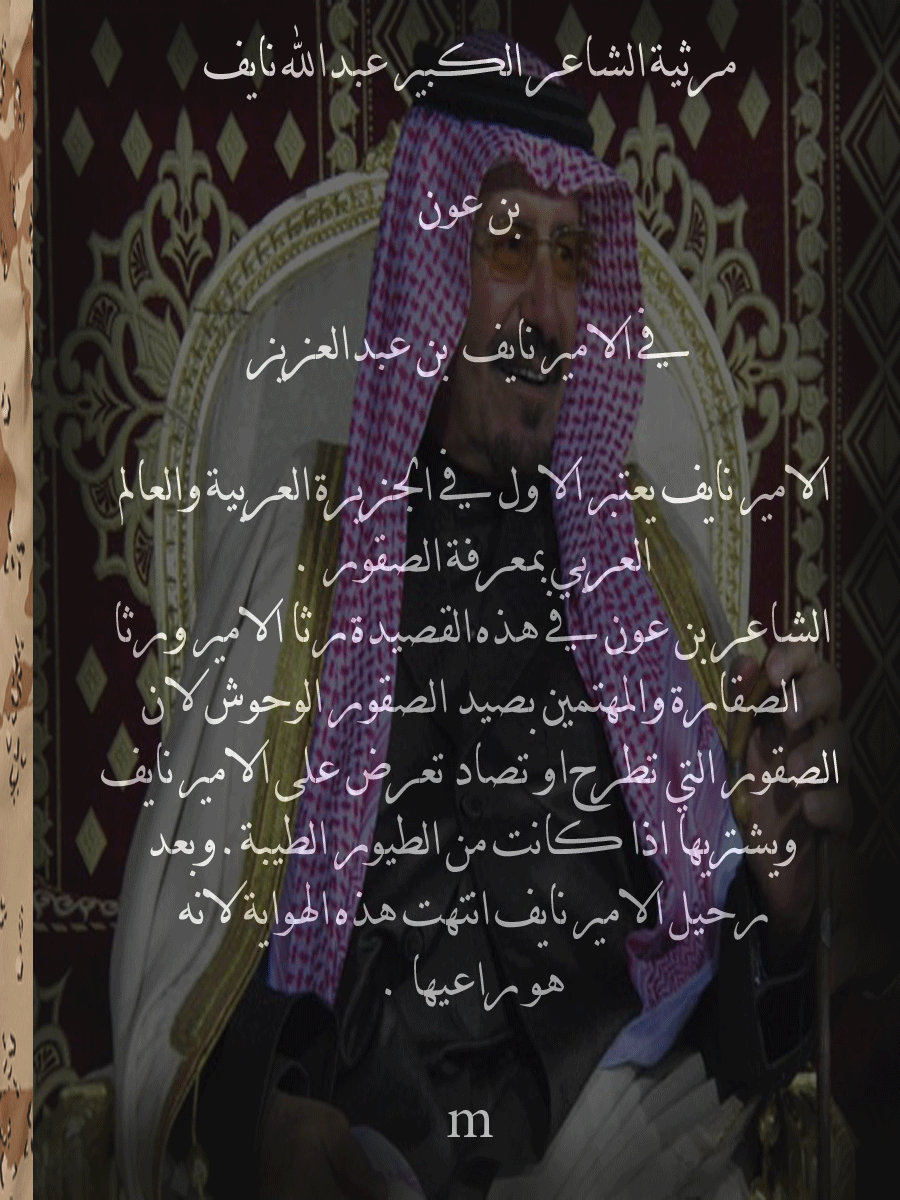 مرثية الشاعر الكبير عبدالله نايف
بن عون
في الامير نايف بن عبدالعزيز
الامير نايف يعتبر الاول في الجزيرة العربية والعالم
العربي بمعرفة الصقور .
الشاعر بن عون في هذه القصيدة رثا الامير ورثا
الصقارة والمهتمين بصيد الصقور الوحوش لان
الصقور التي تطرح او تصاد تعرض على الامير نايف
ويشتريها اذا كانت من الطيور الطيبة . وبعد
رحيل الامير نايف انتهت هذه الهواية لانه
هو راعيها .
m